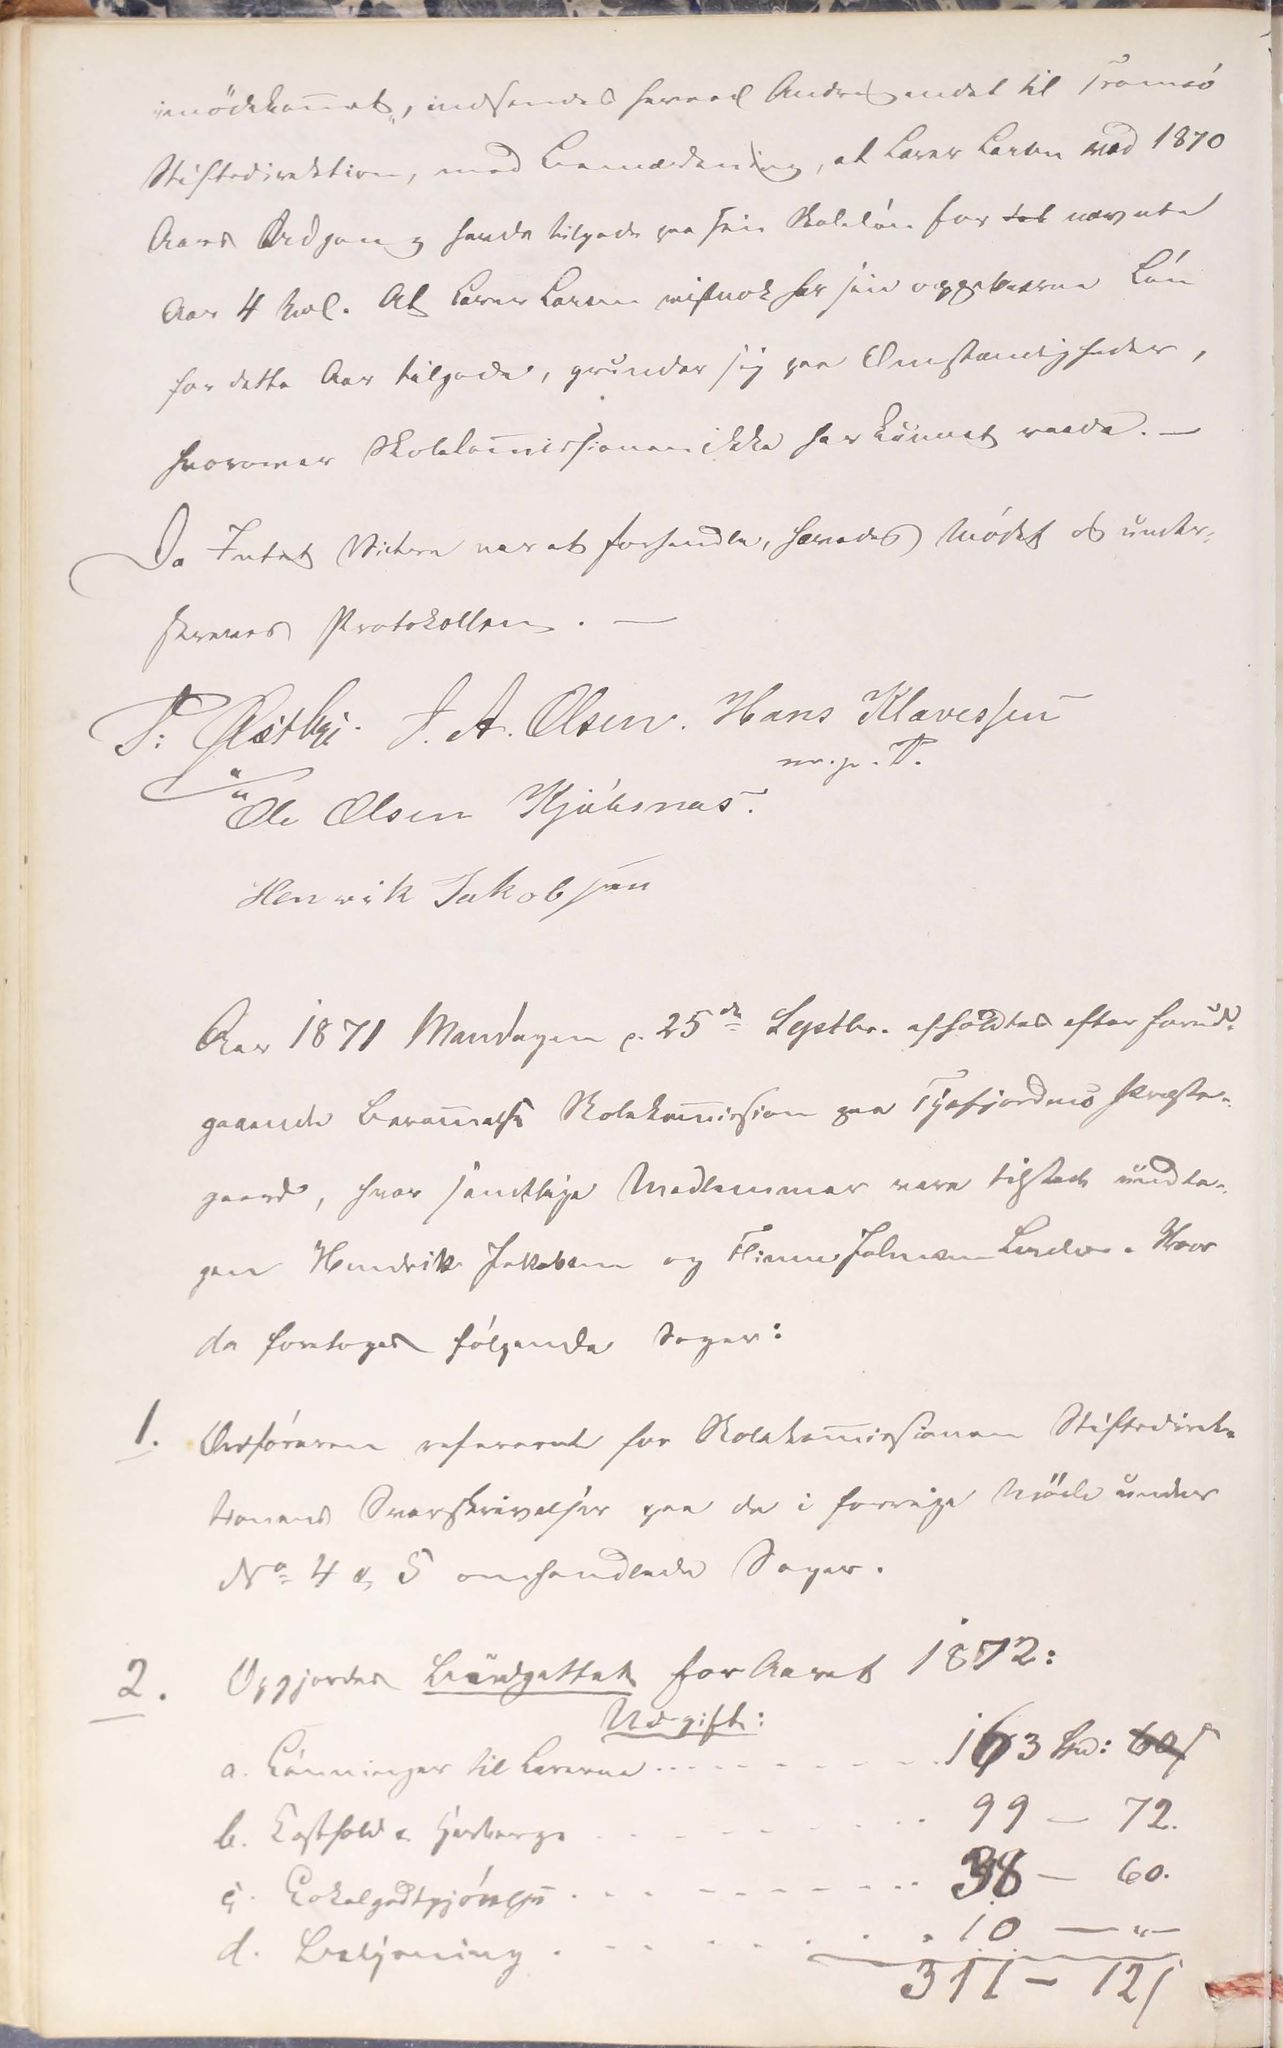 imödekommet", indsendes herved Andragendet til Tromsö
Stiftsdirektion, med Bemærkning, at Lærer Larsen ved 1870
Aars Udgang havde tilgode paa sin Skoleløn for nævnte
Aar 4 Spd. At Lærer Larsen vistnok har sin Løn
for dette Aar tilgode, grunder sig paa Omstændigheder,
hvorover Skolekommissionen ikke har kunnet raade. —
Da Intet Videre var at forhandle, hævedes Mödet og under-
skreves Protokollen. —
P. Østbye. J. A. Olsen. Hans Klavessen
m. p. P.
Ole Olsen Kjöbsnæs.
Henrik Jakobsen
Aar 1871 Mandagen d. 25de Septbr. afholdtes efter forud-
gaaende Berammelse Skolekommission paa Tysfjordens Præste-
gaard, hvor samtlige Medlemmer vare tilstede undta-
gen Hendrik Jakobsen og Hvor
da foretoges fölgende Sager:
1. Ordføreren refererede for Skolekommissionen Stiftsdirek-
tionens Svarskrivelser paa de i forrige Möde under
No 4 & 5 omhandlede Sager.
2. Opgjordes Budgettet for Aaret 1872:
Udgift:
a. Lønninger til Lærerne 163 Spd:
b. Kosthold & Herberge 99 — 72.
c. Lokalgodtgjörelse 38 — 60.
d. Belysning 10 — " —
311 — 12